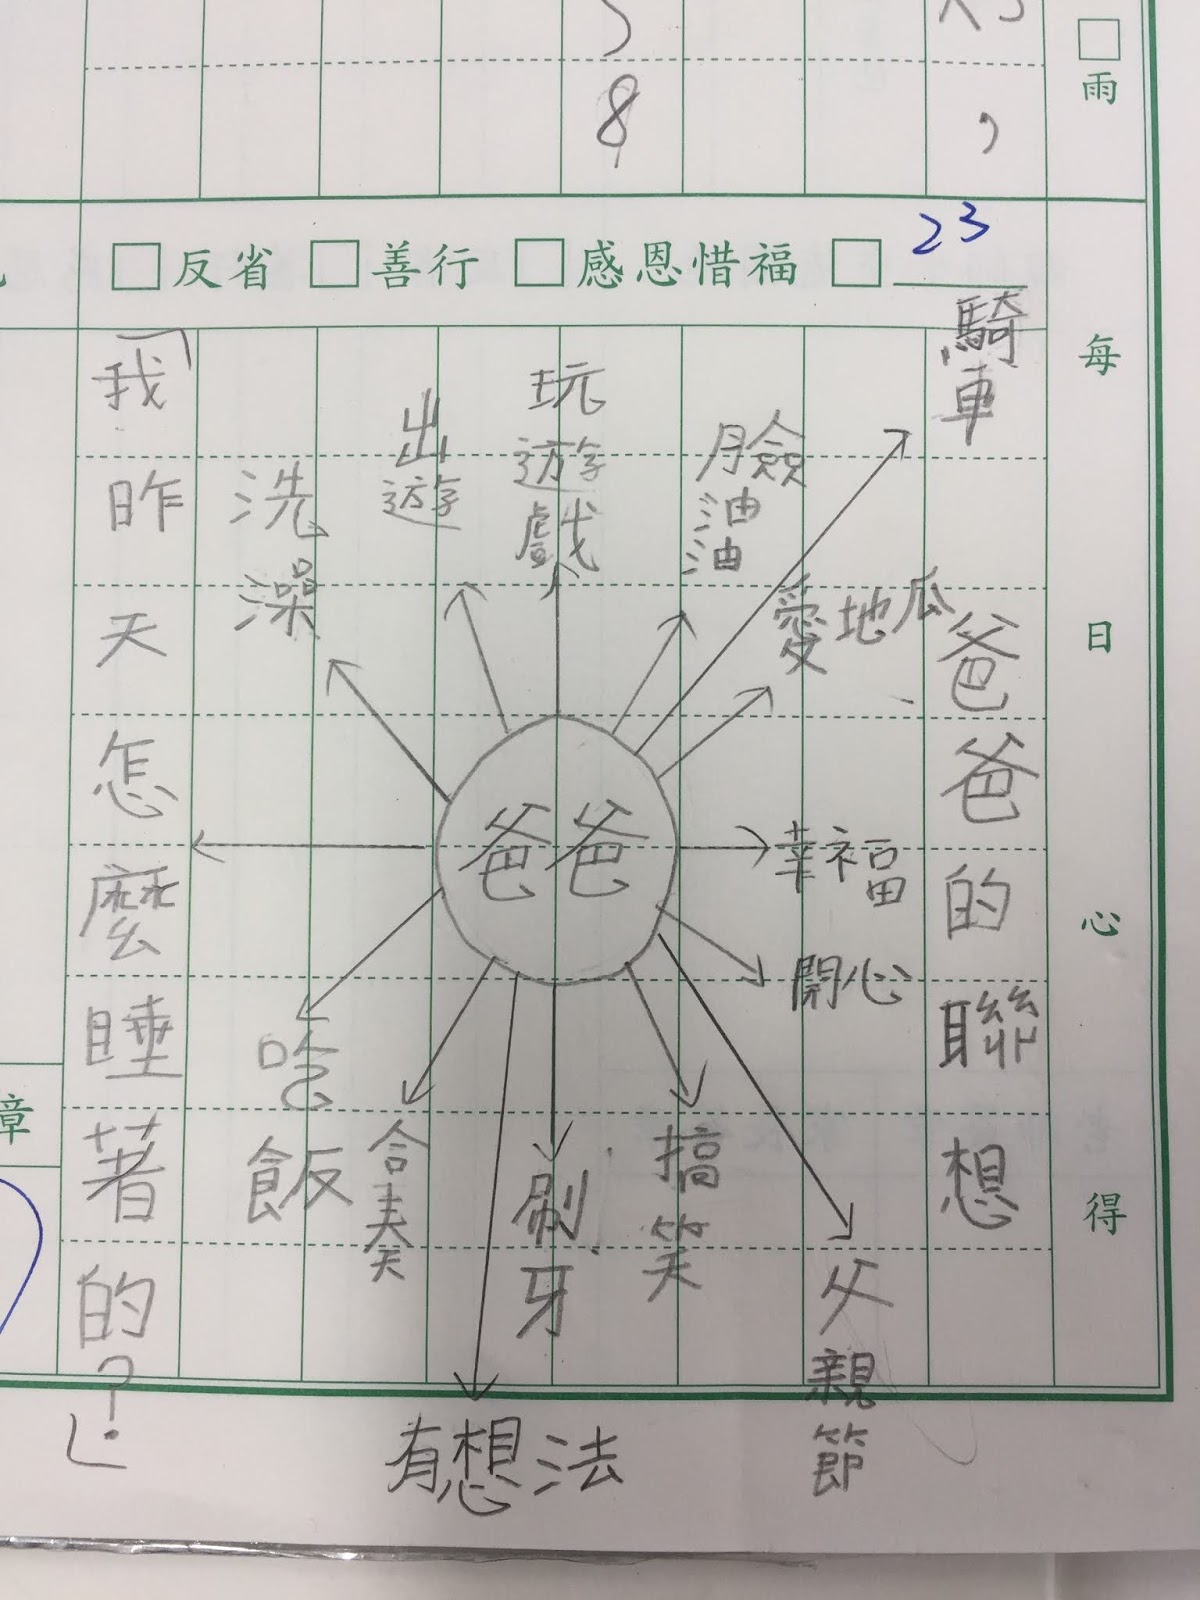 8
，
雨
□反省 □善行 □感恩惜福 □
23
每日心得
爸爸的聯想
爸爸
騎車
愛地瓜
臉油油
玩遊戲
出遊
洗澡
「我昨天怎麼睡著的?」
吃飯
合奏
有想法
刷牙
搞笑
父親節
開心
幸福
章